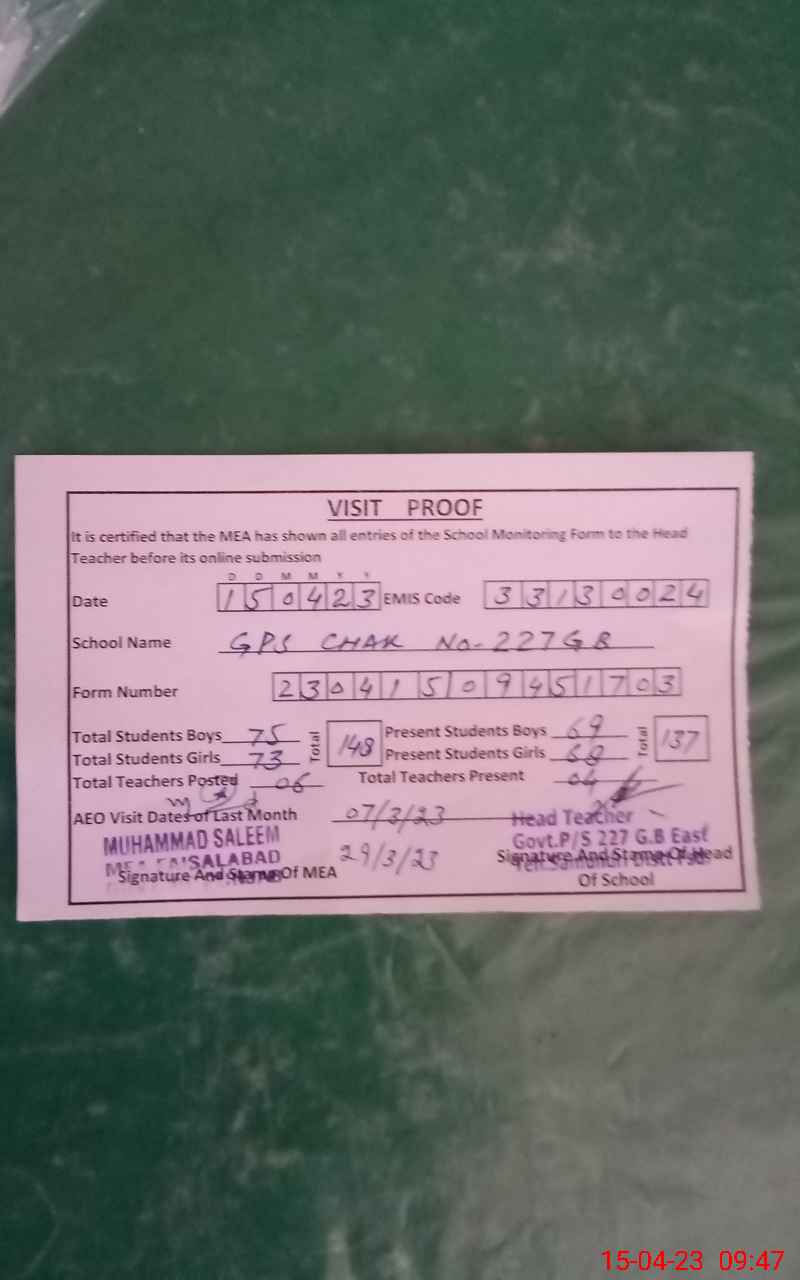 VISIT PROOF
It is certified that the MEA has shown all entries of the School Monitoring Form to the Head
Teacher before its online submission
D D M M Y Y
Date 150423 EMIS Code 33130024
School Name GPS CHAK No-227GB
Form Number 23041509451703
Total Students Boys 75 Total 148 Present Students Boys 69 Total 137
Total Students Girls 73 Present Students Girls 68
Total Teachers Posted 06 Total Teachers Present 04
AEO Visit Dates of Last Month 07/3/23
29/3/23
MUHAMMAD SALEEM
MEA FAISALABAD
Signature And Stamp Of MEA
Head Teacher
Govt.P/S 227 G.B East
Signature And Stamp Of Head
Of School
15-04-23 09:47